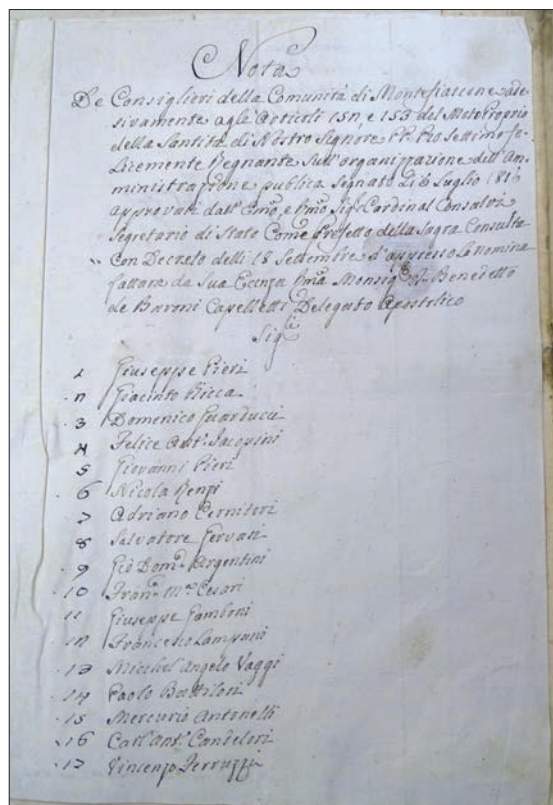 Nota
De Consiglieri della Comunità di Montefiascone ade-
sivamente agli Articoli 152, e 153 del Moto Proprio
della Santità di Nostro Signore PP. Pio Settimo fe-
licemente Regnante sull'organizzazione dell'Am-
ministrazione publica segnato li 6 Luglio 1816
approvati dall'Emo, e Rmo Sigr Cardinal Consalvi
Segretario di Stato Come Prefetto della Sagra Consulta
Con Decreto delli 18 Settembre d'appresso la nomina
fattone da Sua Eccnza Rma Monsigr Benedetto
de Baroni Capelletti Delegato Apostolico
Sigli
1 Giuseppe Pieri
2 Giacinto Ricca
3 Domenico Guarducci
4 Felice Ant.o Jacopini
5 Giovanni Pieri
6 Nicola Renzi
7 Adriano Cernitori
8 Salvatore Gervasi
9 Gio Dom.o Argentini
10 Fran.o M.a Cesari
11 Giuseppe Zamboni
12 Francesco Lampani
13 Michel'angelo Vaggi
14 Paolo Battilori
15 Mercurio Antonelli
16 Carl'Ant.o Candelori
17 Vincenzo Ferruzzi